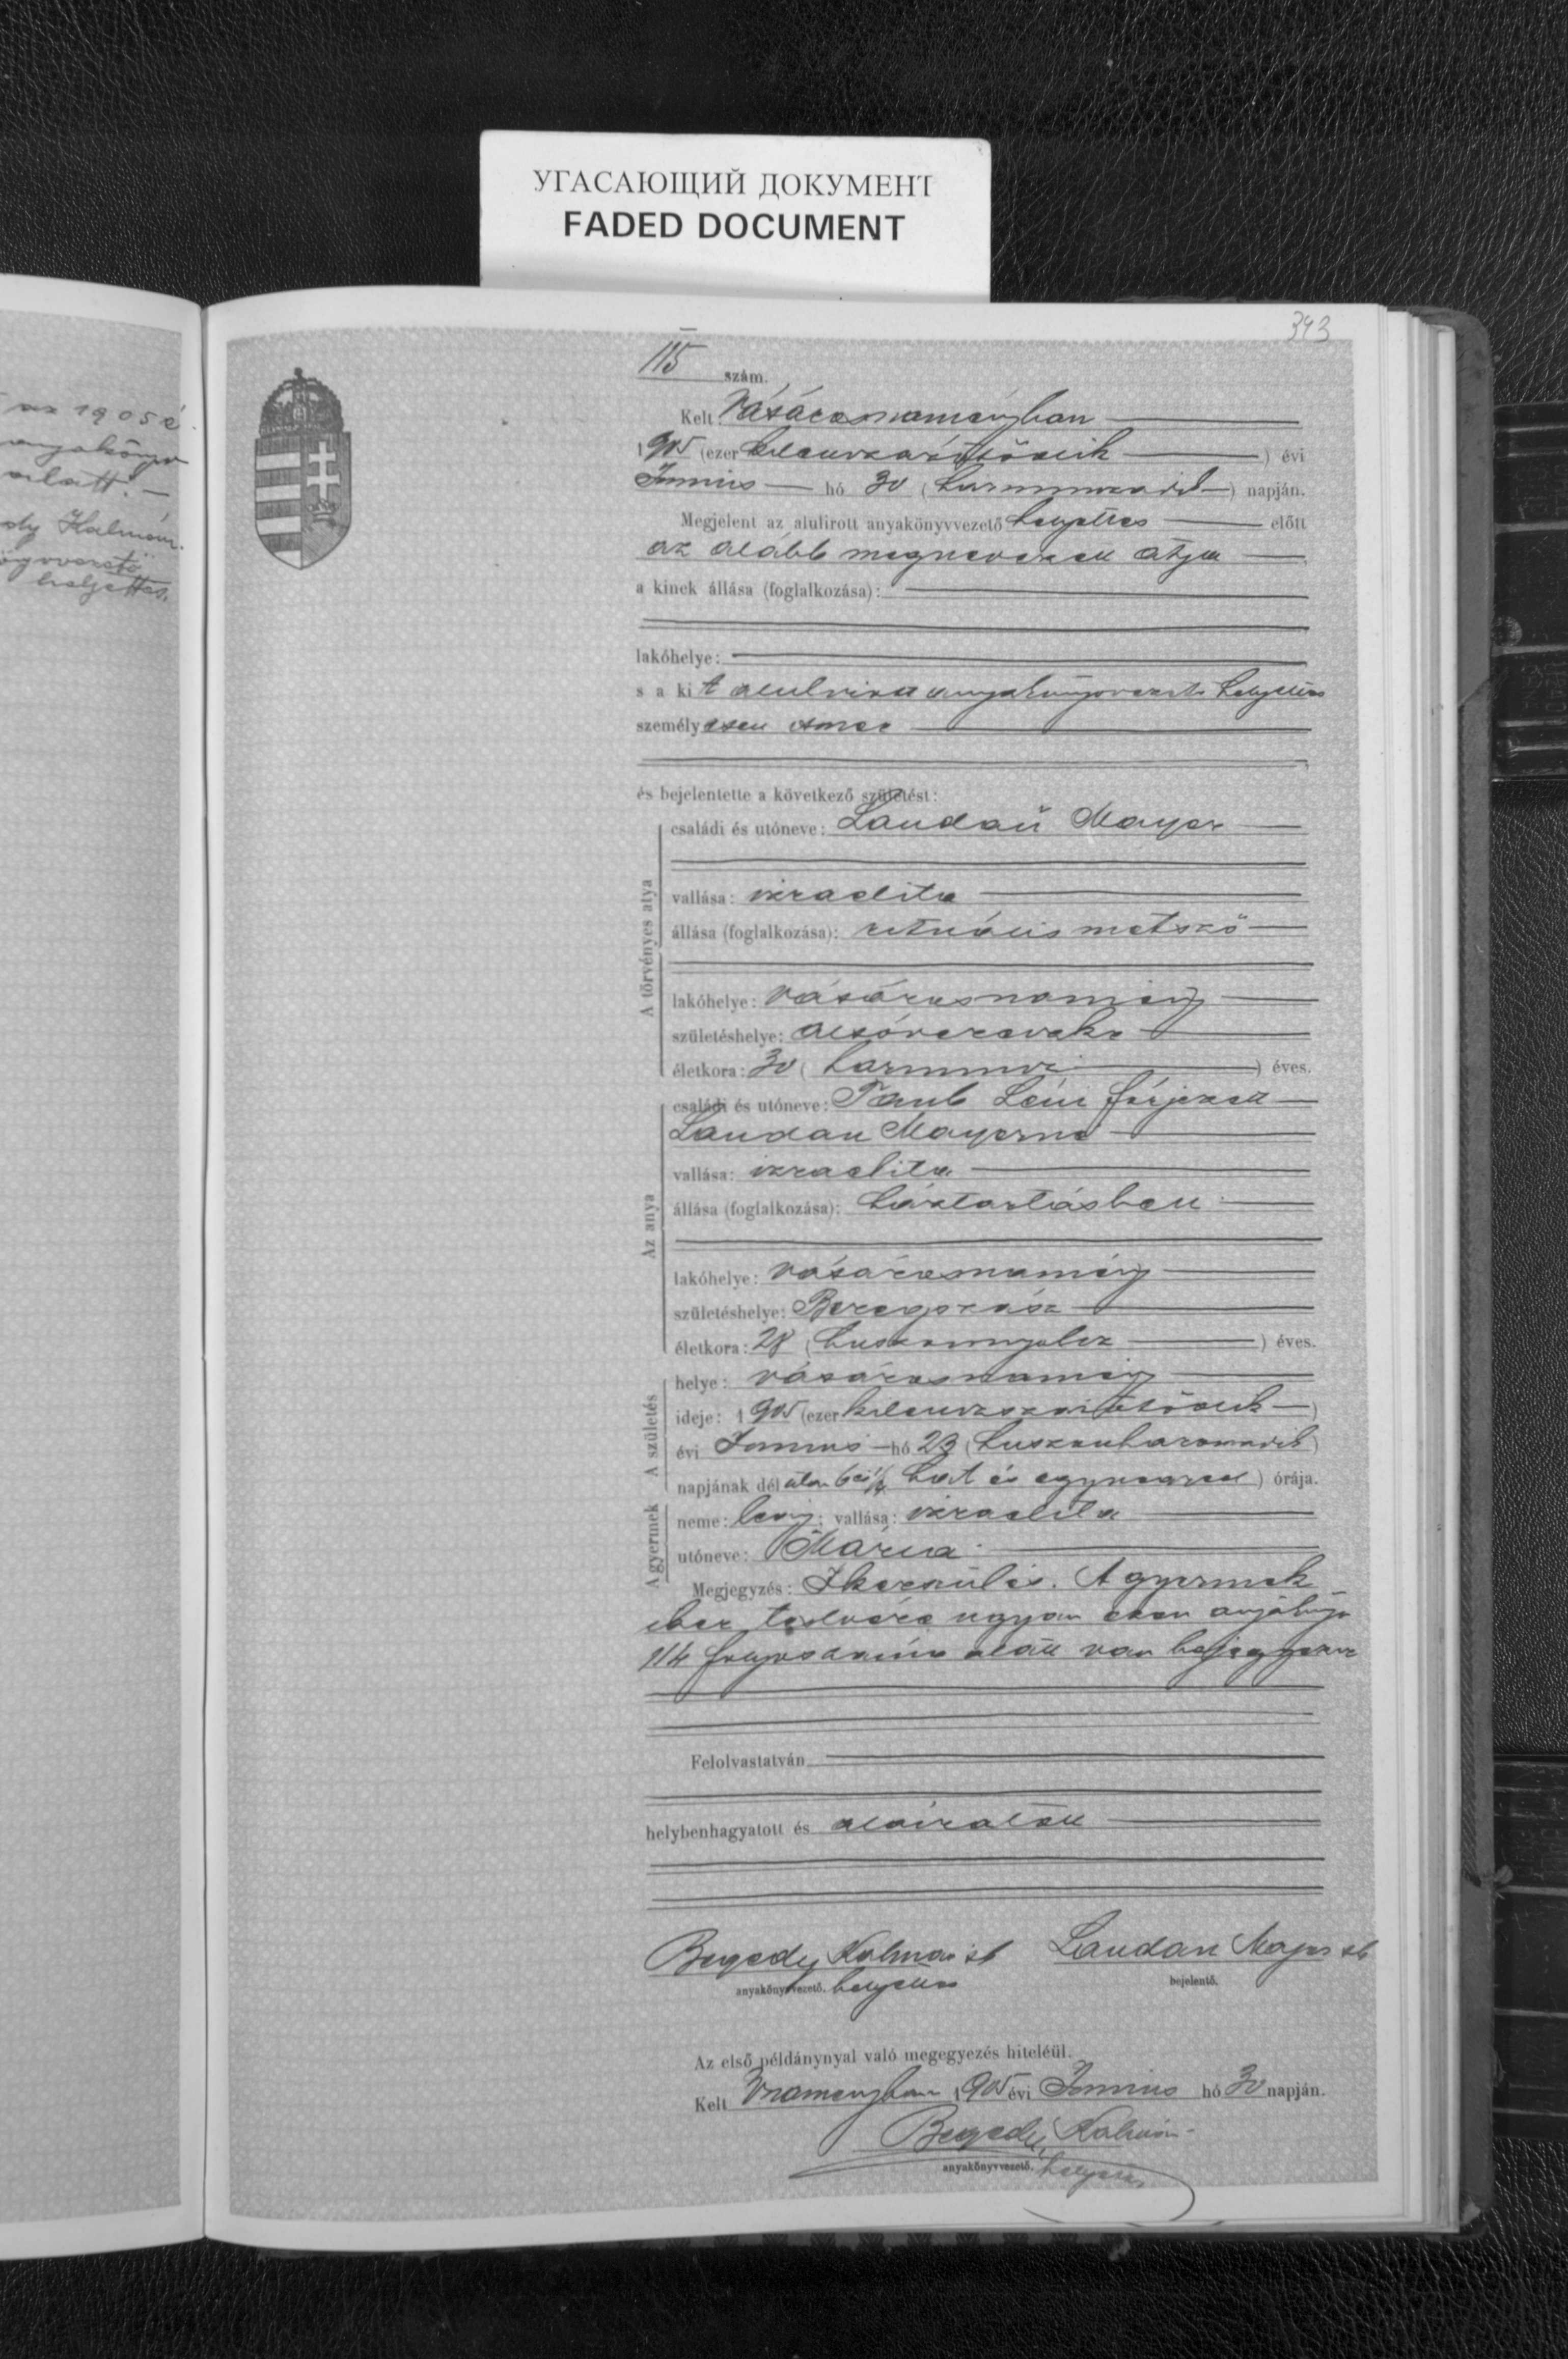 УГАСАЮЩИЙ ДОКУМЕНТ
FADED DOCUMENT
az 1905 é
anyakönyv
alatt. —
dy Kálmán.
helyettes.
343
115 szám.
Kelt Vásárosnaményban
1905 (ezer kilenczszázötödik) évi
Junius hó 30 (harminczadik) napján.
Megjelent az alulirott anyakönyvvezető helyettes előtt
az alább megnevezett atya
a kinek állása (foglalkozása):
lakóhelye:
s a kit alulirott anyakönyvvezető helyettes
személyesen ismer
és bejelentette a következő születést:
A törvényes atya
családi és utóneve: Landau Mayer
vallása: izraelita
állása (foglalkozása): rituális metsző
lakóhelye: vásárosnamény
születéshelye: alsóvereczke
életkora: 30 (harmincz) éves.
Az anya
családi és utóneve: Taub Léni férjezett
Landau Mayerné
vallása: izraelita
állása (foglalkozása): háztartásbeli
lakóhelye: vásárosnamény
születéshelye: Beregszász
életkora: 28 (huszonnyolcz) éves.
A születés
helye: vásárosnamény
ideje: 1905 (ezer kilenczszázötödik)
évi Junius hó 23 (huszonharmadik)
napjának dél után 6 és 1/4 (hat és egynegyed) órája.
A gyermek
neme: leány; vallása: izraelita
utóneve: Mária
Megjegyzés: Ikerszülés. A gyermek
iker testvére ugyan ezen
114 folyószám alatt van bejegyezve
Felolvastatván
helybenhagyatott és aláiratott
Begedy Kálmán sk Landau Mayer sk
anyakönyvvezető. helyettes bejelentő.
Az első példánynyal való megegyezés hiteléül.
Kelt Vnaményban 1905 évi Junius hó 30 napján.
Begedy Kálmán
anyakönyvvezető. helyettes